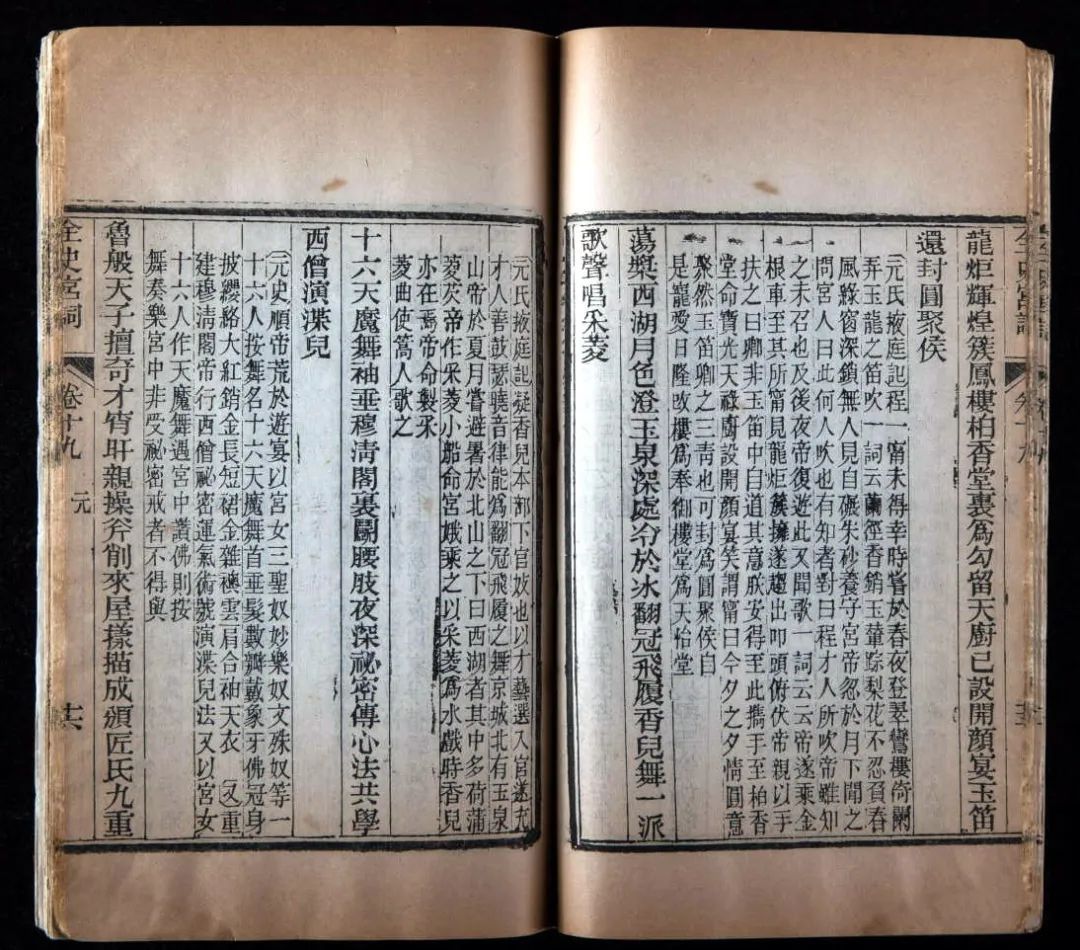 龍炬輝煌簇鳳樓柏香堂裏爲勾留天廚已設開顏宴玉笛
還封圓聚侯
元氏掖庭記程一甯未得幸時嘗於春夜登翠鸞樓倚闌
弄玉龍之笛吹一詞云蘭徑香銷玉輦踪梨花不忍負春
風綠窗深鎖無人見自碾朱砂養守宮帝忽於月下聞之
問宮人曰此何人吹也有知者對曰程才人所吹帝雖知
之未召也及後夜帝復遊此又聞歌一詞云云帝遂乘金
根車至其所甯見龍炬簇擁遂趨出叩頭俯伏帝親以手
扶之曰卿非玉笛中自道其意朕安得至此攜手至柏香
堂命寶光天祿廚設開顏宴笑謂甯曰今夕之夕情圓意
聚然玉笛卿之三青也可封爲圓聚侯自
是寵愛日隆改樓爲奉御樓堂爲天怡堂
蕩槳西湖月色澄玉泉深處冷於冰翻冠飛履香兒舞一派
歌聲唱采菱
元氏掖庭記凝香兒本部下官妓也以才藝選入宮遂充
才人善鼓瑟曉音律能爲翻冠飛履之舞京城北有玉泉
山帝於夏月嘗避暑於北山之下曰西湖者其中多荷蒲
菱芡帝作采菱小船命宮娥乘之以采菱爲水戲時香兒
亦在焉帝命製采
菱曲使篙人歌之
十六天魔舞袖垂穆清閣裏鬬腰肢夜深祕密傳心法共學
西僧演渫兒
元史順帝荒於遊宴以宮女三聖奴妙樂奴文殊奴等一
十六人按舞名十六天魔舞首垂髮數辮戴象牙佛冠身
披纓絡大紅銷金長短裙金雜襖雲肩合袖天衣 又重
建穆清閣帝行西僧祕密運氣術號演渫兒法又以宮女
十六人作天魔舞遇宮中讚佛則按
舞奏樂宮中非受祕密戒者不得與
魯般天子擅奇才宵旰親操斧削來屋樣描成頒匠氏九重
全史宮詞 卷十九 元